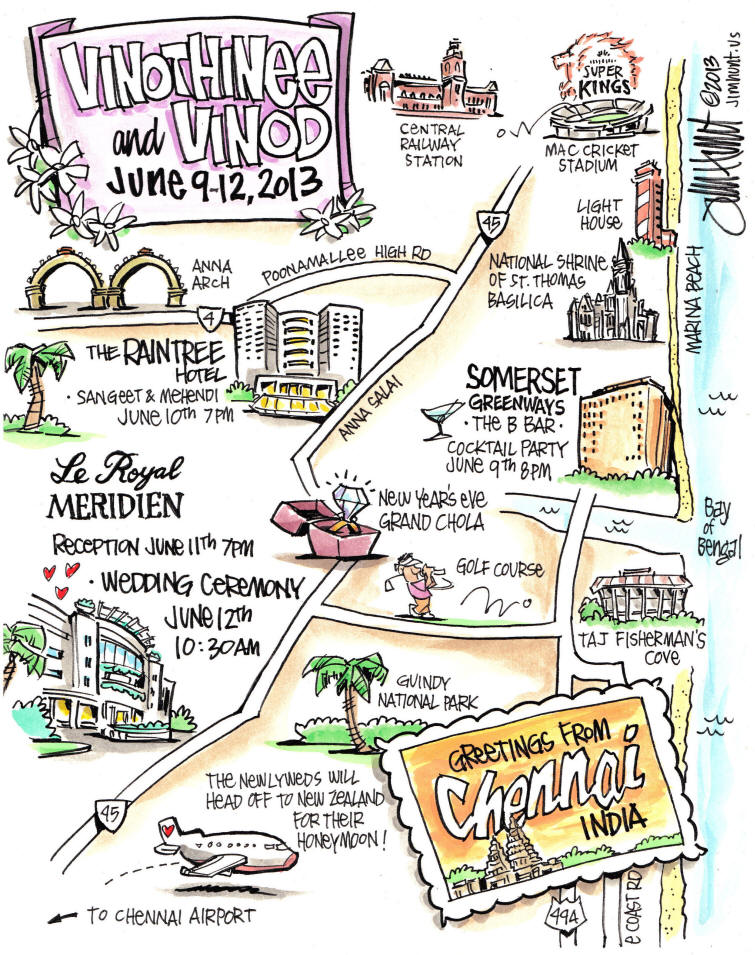 VINOTHINEE
and VINOD
JUNE 9-12, 2013
CENTRAL
RAILWAY
STATION
SUPER
KINGS
MAC CRICKET
STADIUM
©2013
JIMHUNT.US
Jim Hunt
45
LIGHT
HOUSE
ANNA
ARCH
POONAMALLEE HIGH RD
NATIONAL SHRINE
OF ST. THOMAS
BASILICA
MARINA BEACH
4
THE RAINTREE
HOTEL
· SANGEET & MEHENDI
JUNE 10th 7PM
ANNA SALAI
SOMERSET
GREENWAYS
· THE B BAR ·
COCKTAIL PARTY
JUNE 9th 8PM
Le Royal
MERIDIEN
RECEPTION JUNE 11th 7PM
· WEDDING CEREMONY
JUNE 12th
10:30AM
NEW YEAR'S EVE
GRAND CHOLA
Bay
of
Bengal
GOLF COURSE
TAJ FISHERMAN'S
COVE
GUINDY
NATIONAL PARK
GREETINGS FROM
Chennai
INDIA
THE NEWLYWEDS WILL
HEAD OFF TO NEW ZEALAND
FOR THEIR
HONEYMOON!
45
TO CHENNAI AIRPORT
49A
E COAST RD